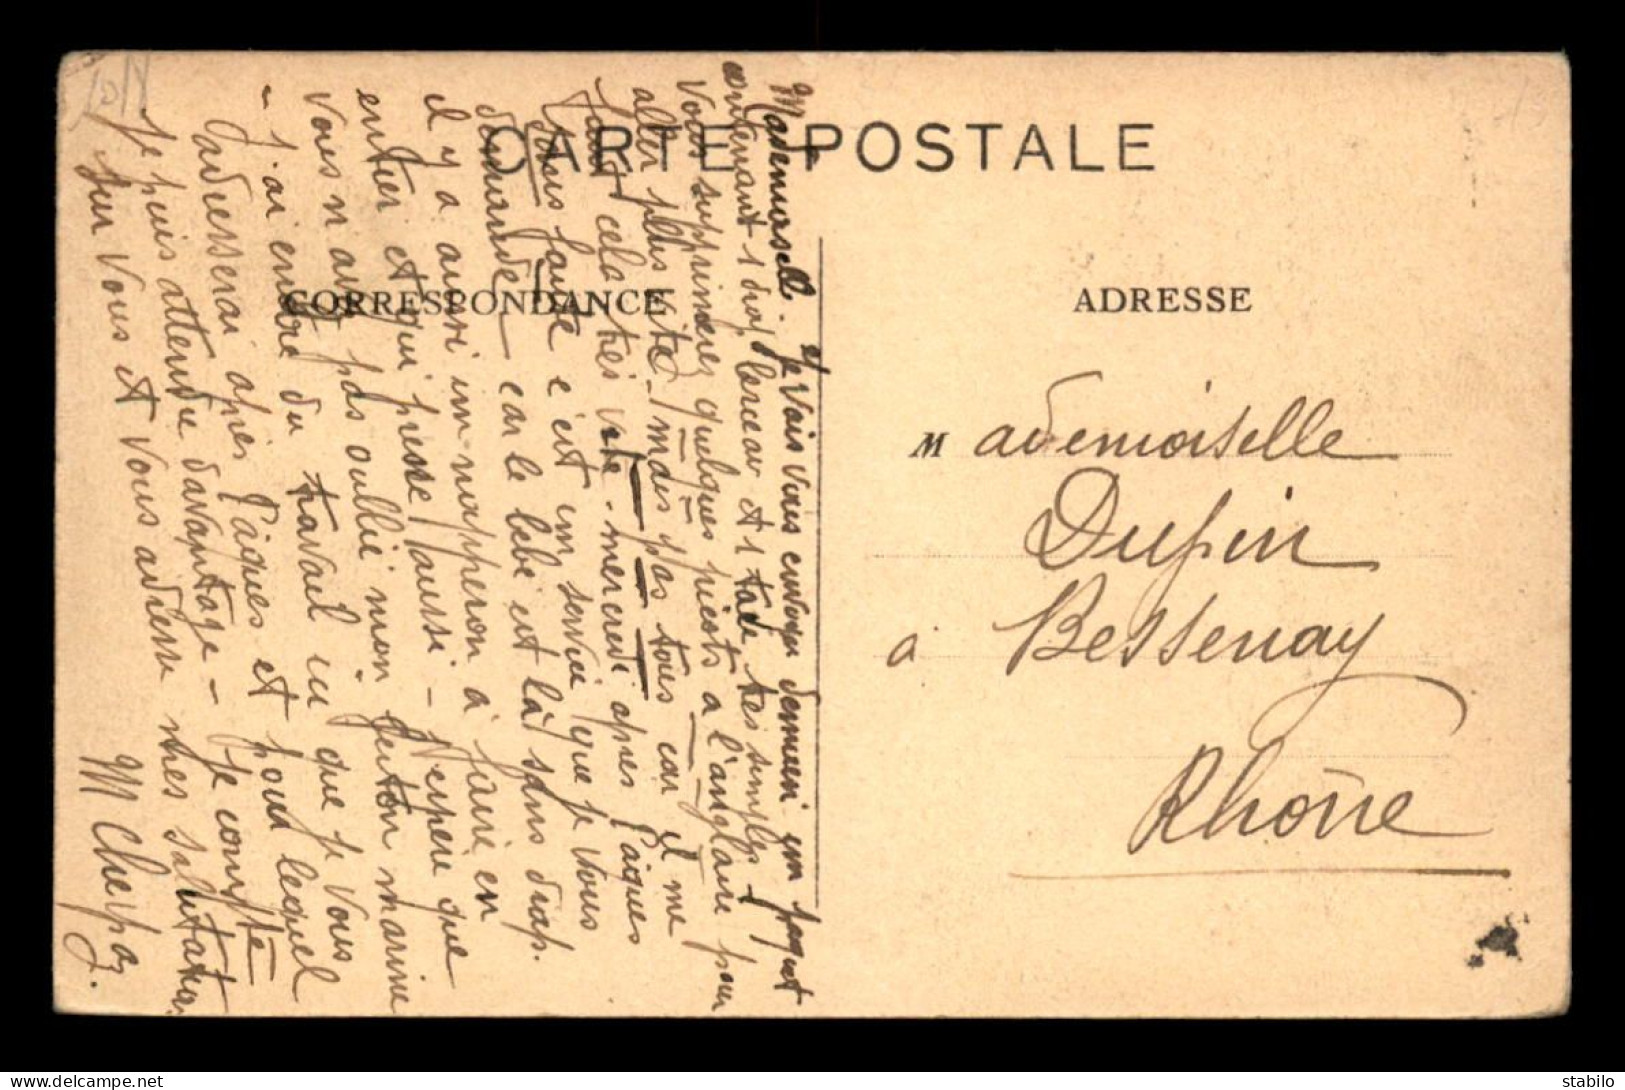 CARTE POSTALE
CORRESPONDANCE
ADRESSE
Mademoiselle
Dupin
à Bessenay
Rhône
Mademoiselle. Je vais vous envoyer demain un paquet
contenant 1 drap berceau et 1 taie très simples -
Vous supprimerez quelques picots à l'anglaise pour
aller plus vite - mais pas tous car il me
faut cela très vite - mercredi après Pâques
sans faute c'est un service que je vous
demande - car le bébé est là sans drap.
il y a aussi un napperon à faire en
entier et qui presse aussi - J'espère que
vous n'avez pas oublié mon feston marine
- j'ai encore du travail que je vous
adresserai après Pâques et pour lequel
je puis attendre davantage - Je compte
sur vous et vous adresse mes salutations
M Cherpaz.
stabilo